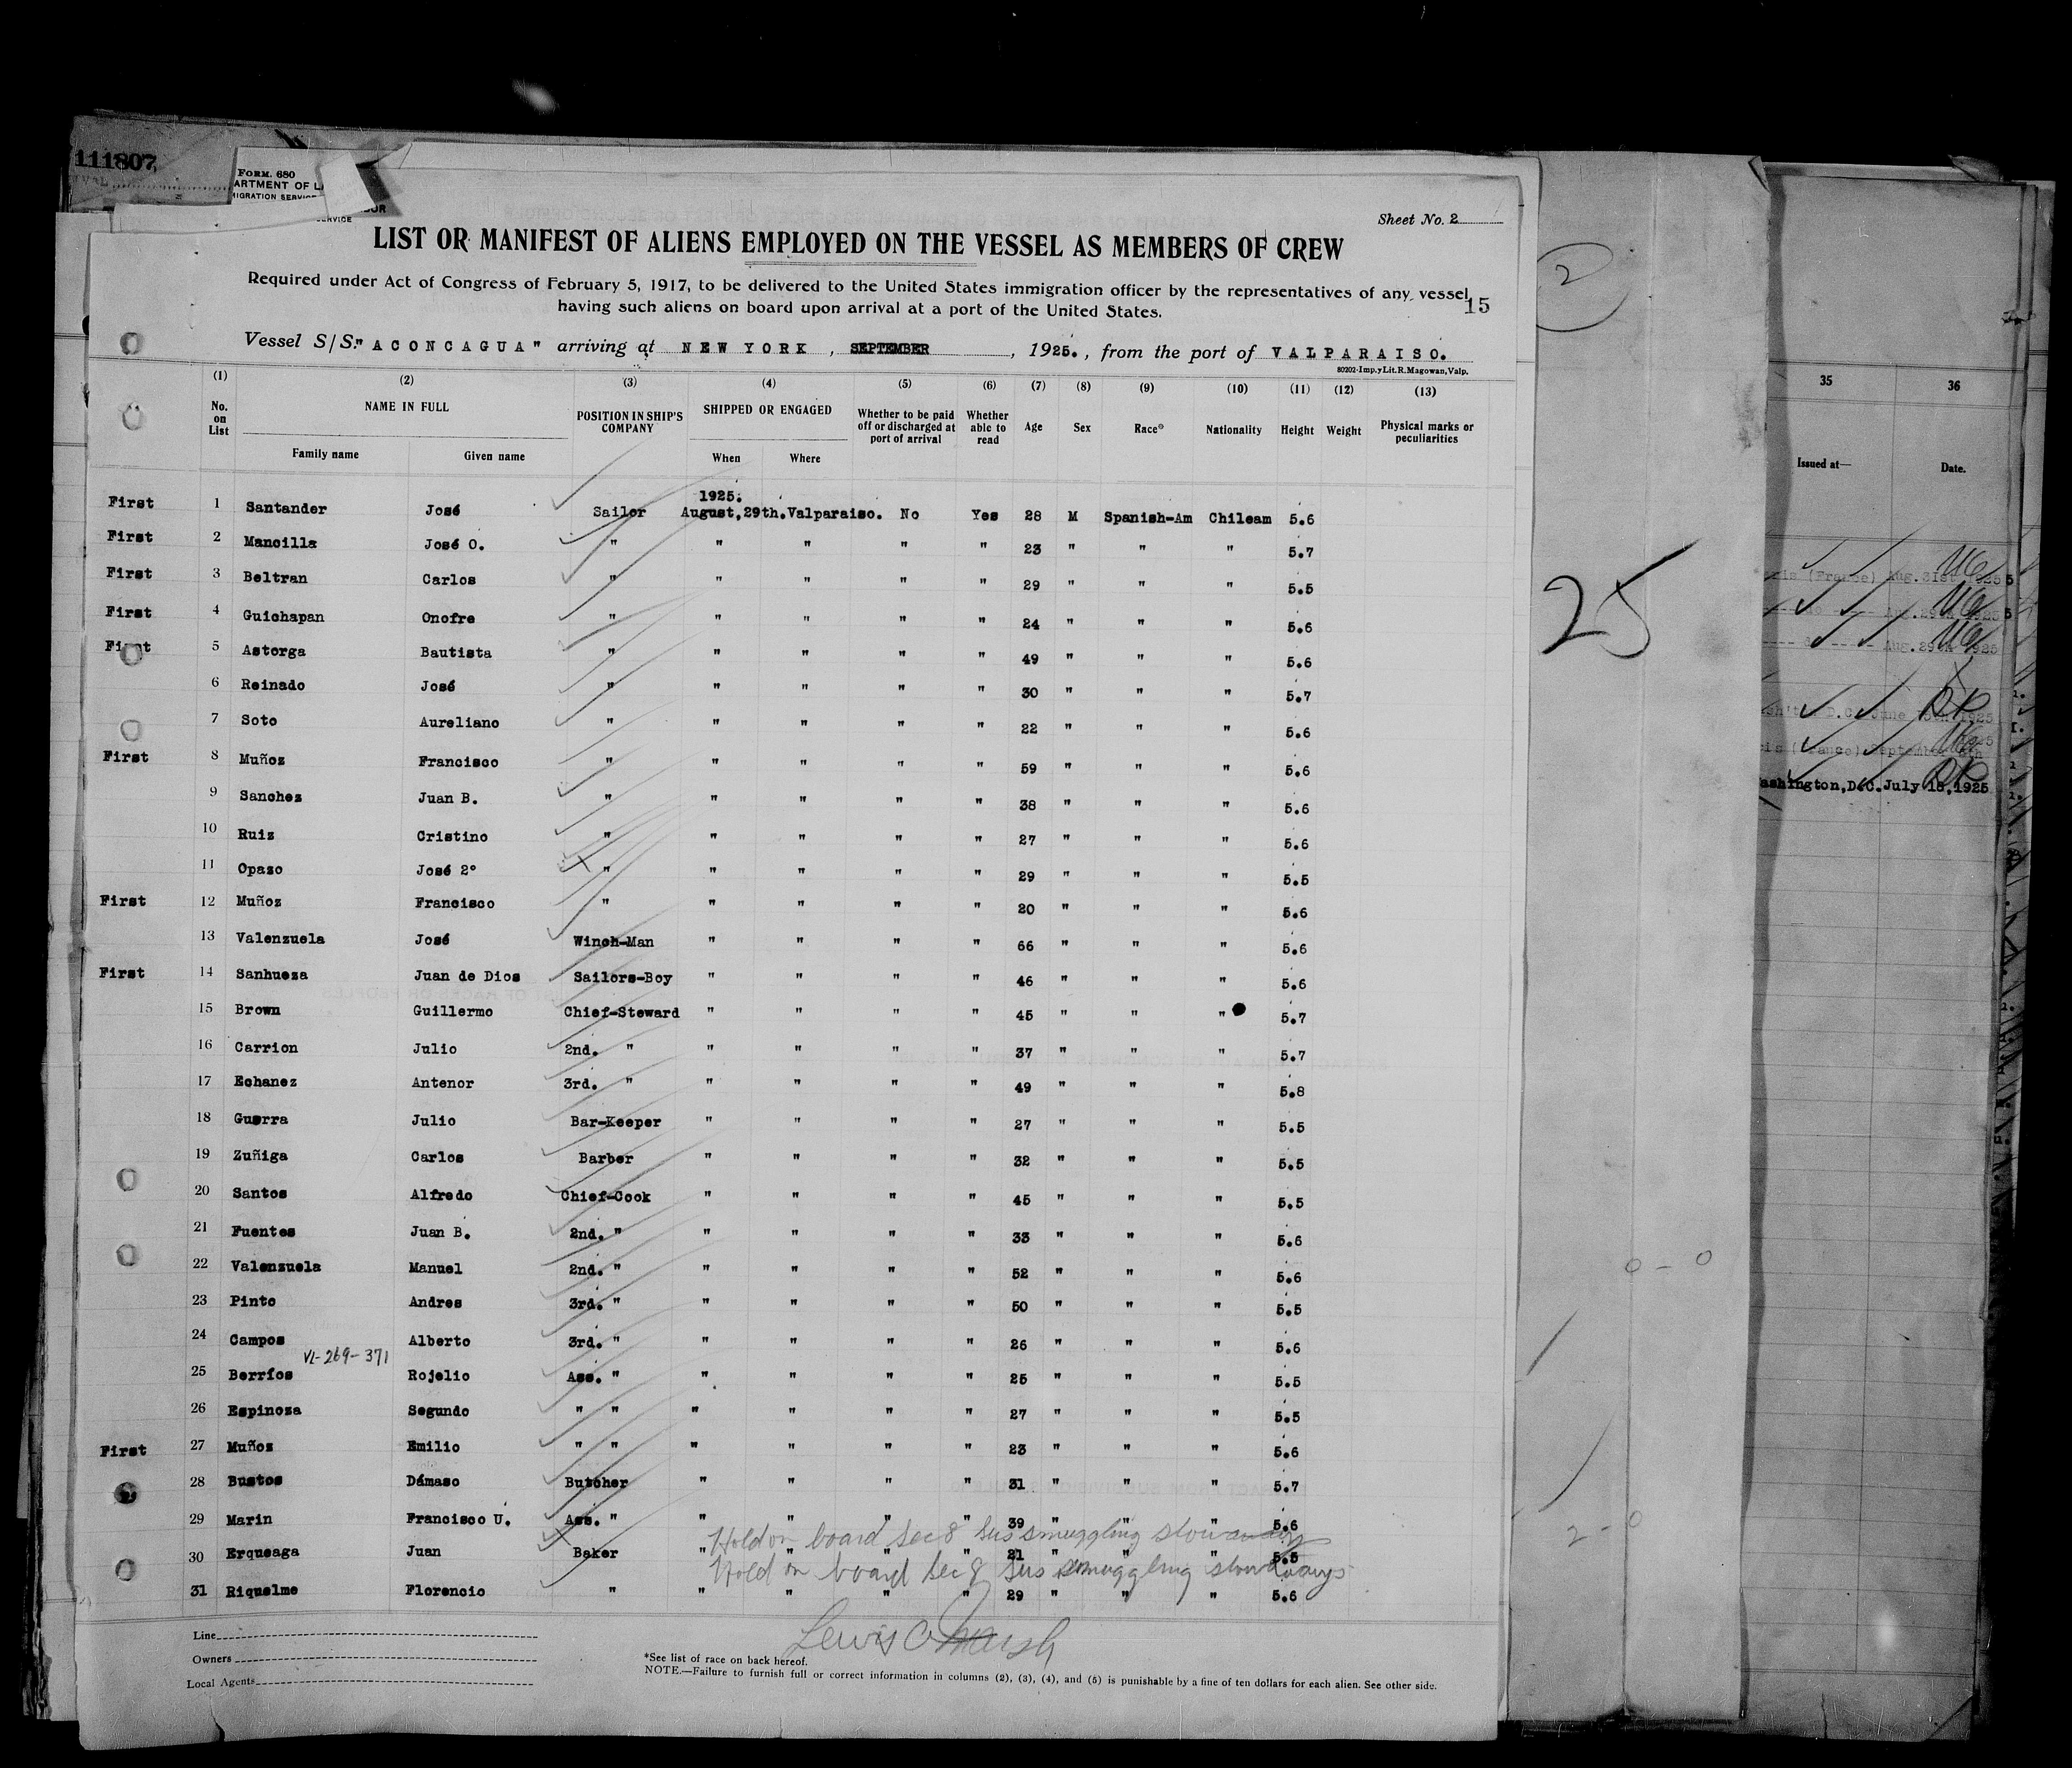 111807
FORM. 680
ARTMENT OF LA
MIGRATION SERVICE
SERVICE
Sheet No. 2
LIST OR MANIFEST OF ALIENS EMPLOYED ON THE VESSEL AS MEMBERS OF CREW
Required under Act of Congress of February 5, 1917, to be delivered to the United States immigration officer by the representatives of any vessel
having such aliens on board upon arrival at a port of the United States.
15
Vessel S/S."ACONCAGUA" arriving at NEW YORK, SEPTEMBER, 1925., from the port of VALPARAISO.
80202-Imp.yLit.R.Magowan,Valp.
(1) (2) (3) (4) (5) (6) (7) (8) (9) (10) (11) (12) (13)
No. on List NAME IN FULL POSITION IN SHIP'S COMPANY SHIPPED OR ENGAGED Whether to be paid off or discharged at port of arrival Whether able to read Age Sex Race* Nationality Height Weight Physical marks or peculiarities
Family name Given name When Where
1925.
First 1 Santander José Sailor August,29th.Valparaiso. No Yes 28 M Spanish-Am Chileam 5.6
First 2 Mancilla José O. " " " " " 23 " " " 5.7
First 3 Beltran Carlos " " " " " 29 " " " 5.5
First 4 Guichapan Onofre " " " " " 24 " " " 5.6
First 5 Astorga Bautista " " " " " 49 " " " 5.6
6 Reinado José " " " " " 30 " " " 5.7
7 Soto Aureliano " " " " " 22 " " " 5.6
First 8 Muñoz Francisco " " " " " 59 " " " 5.6
9 Sanchez Juan B. " " " " " 38 " " " 5.6
10 Ruiz Cristino " " " " " 27 " " " 5.6
11 Opazo José 2° " " " " " 29 " " " 5.5
First 12 Muñoz Francisco " " " " " 20 " " " 5.6
13 Valenzuela José Winch-Man " " " " 66 " " " 5.6
First 14 Sanhueza Juan de Dios Sailors-Boy " " " " 46 " " " 5.6
15 Brown Guillermo Chief-Steward " " " " 45 " " " 5.7
16 Carrion Julio 2nd. " " " " " 37 " " " 5.7
17 Echanez Antenor 3rd. " " " " " 49 " " " 5.8
18 Guerra Julio Bar-Keeper " " " " 27 " " " 5.5
19 Zuñiga Carlos Barber " " " " 32 " " " 5.5
20 Santos Alfredo Chief-Cook " " " " 45 " " " 5.5
21 Fuentes Juan B. 2nd. " " " " " 33 " " " 5.6
22 Valenzuela Manuel 2nd. " " " " " 52 " " " 5.6
23 Pinto Andres 3rd. " " " " " 50 " " " 5.5
24 Campos Alberto 3rd. " " " " " 26 " " " 5.6
VL-269-371
25 Berríos Rojelio Ass. " " " " " 25 " " " 5.5
26 Espinoza Segundo " " " " " " 27 " " " 5.5
First 27 Muñoz Emilio " " " " " " 23 " " " 5.6
28 Bustos Dámaso Butcher " " " " 31 " " " 5.7
29 Marin Francisco U. Ass. " " " " " 39 " " " 5.6
Hold on board Sec 8 Sus smuggling stowaways
30 Erqueaga Juan Baker " " " " 21 " " " 5.5
Hold on board Sec 8 Sus smuggling stowaways
31 Riquelme Florencio " " " " " 29 " " " 5.6
Line
Owners
Local Agents
Lewis C Marsh
*See list of race on back hereof.
NOTE.—Failure to furnish full or correct information in columns (2), (3), (4), and (5) is punishable by a fine of ten dollars for each alien. See other side.
2
25
0 - 0
2 - 0
35 36
Issued at— Date.
(France) Aug.31st 1925
Aug.29th 1925
D.C. June 1925
(France) September
ashington,D.C. July 18,1925